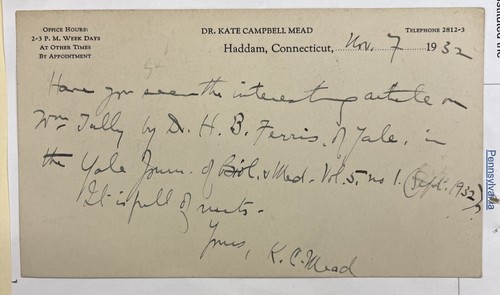 OFFICE HOURS:
2-3 P. M. WEEK DAYS
AT OTHER TIMES
BY APPOINTMENT
DR. KATE CAMPBELL MEAD
Haddam, Connecticut, Nov. 7 1932
TELEPHONE 2812-3
Have you seen the interesting article on
Wm Tully by Dr. H. B. Ferris, of Yale, in
the Yale Journ. of Biol. & Med. Vol. 5, no 1. (Sept. 1932)?
It is full of meats.
Yours,
K. C. Mead
Pennsylvania